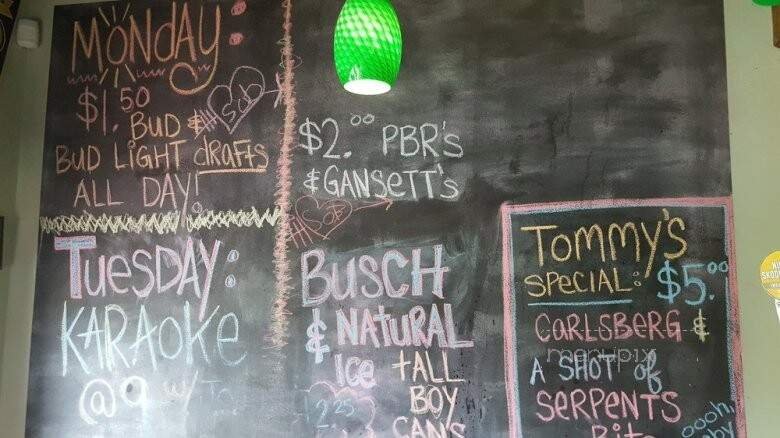 MONDAY:
$1.50
BUD &
BUD LIGHT dRAFTS
ALL DAY!
TUESDAY:
KARAOKE
@9 w/
$2.00 PBR's
& GANSETT's
BUSCH
& NATURAL
ICE tALL
BOY
2.25
CAN's
TOMMY'S
SPECIAL: $5.00
CARLSBERG &
A SHOT of
SERPENTS
BitE
oooh,
menupix